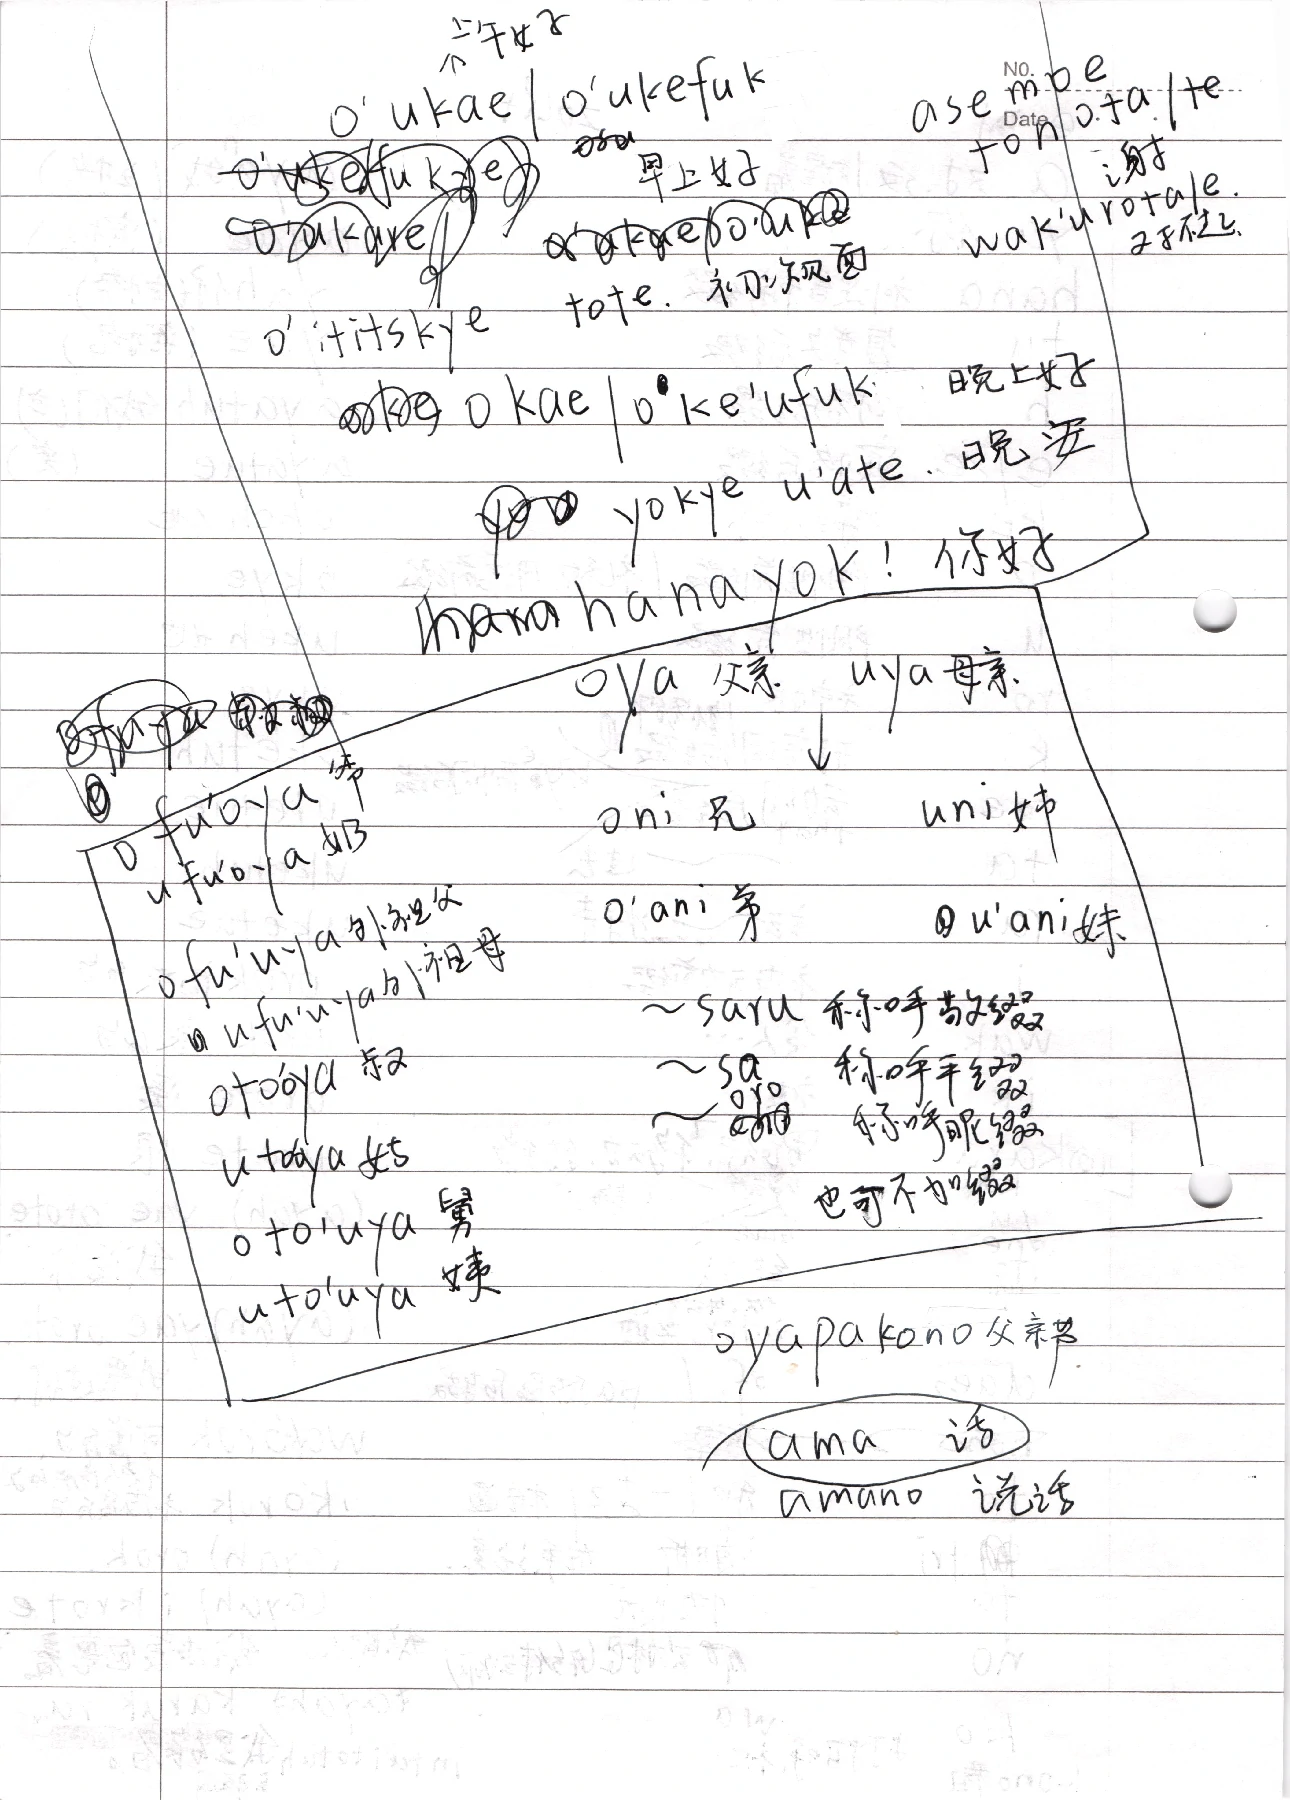 上午好
o'ukae / o'ukefuk
早上好
No.
Date
asemoe
toniota / te
谢
wak'urotale.
对不起
o'ititskye
tote. 初次见面
okae / o'ke'ufuk 晚上好
yokye u'ate. 晚安
hanayok! 你好
oya 父亲 uya 母亲
↓
oni 兄 uni 姉
o'ani 弟 u'ani 妹
~saru 称呼敬缀
~sa 称呼平缀
~oyo 称呼昵缀
也可不加缀
ofu'oya 爷
ufu'oya 奶
ofu'uya 外祖父
ufu'uya 外祖母
oto'oya 叔
uto'oya 姑
oto'uya 舅
uto'uya 姨
oyapakono 父亲节
ama 话
amano 说话